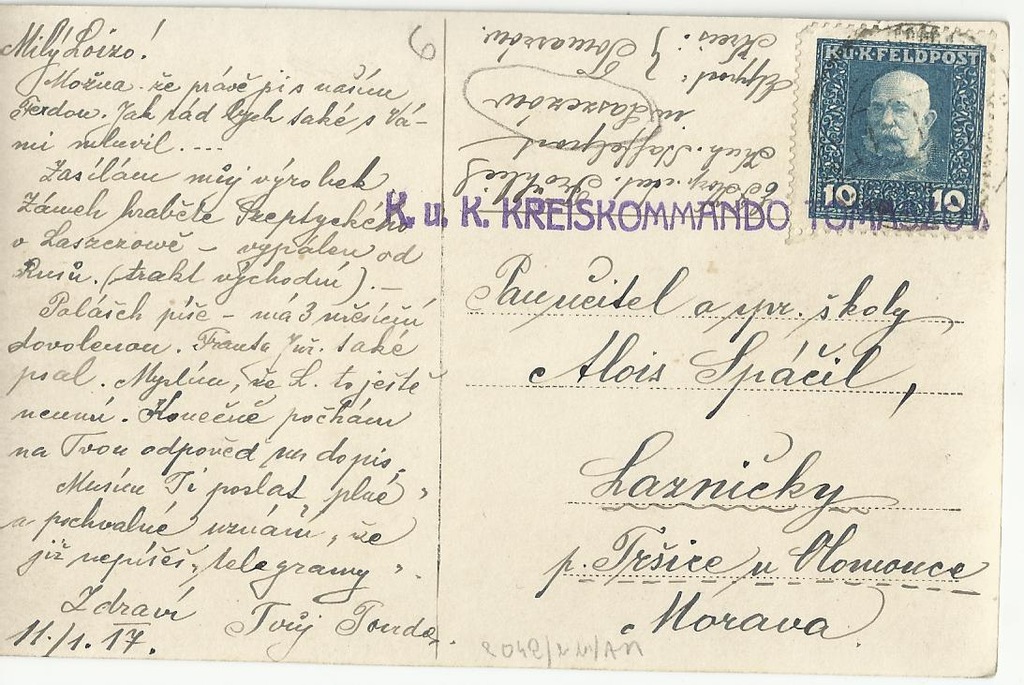 Milý Loizo!
Možná že právě píš našim
Ferdou. Jak rád bych také s Vá-
mi mluvil....
Zasílám můj výrobek
Zámek hraběte Szeptyckého
v Laszczowě – vypálen od
Rusů. (trakt východní). –
Polášch píše – má 3 měsíční
dovolenou. Franta Juř. také
psal. Myslím, že L. to ještě
neumí. Konečně počkám
na Tvou odpověď na dopis.
Musím Ti poslat „plné"
a pochvalné uznání, že
již nepíšeš „telegramy".
Zdraví
Tvůj Tonda.
11./1. 17.
6
K.u.K. FELDPOST
10 10
K. u. K. KREISKOMMANDO TOMASZOW
Staffelpark
in Laszczów
Kreis: Tomaszów
Pan učitel a spr. školy
Alois Spáčil,
Lazničky
p. Tršice u Olomouce
Morava